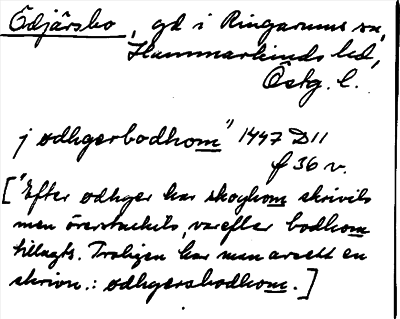 Edjärsbo, gd i Ringarums sn,
Hammarkinds hd,
Östg. l.
j ødhgerbodhom" 1447 D11
f 36 v.
["Efter ødhger har skoghom skrivits
men överstrukits, varefter bodhom
tillagts. Troligen har man avsett en
skrivn.: ødhgersbodhom.]